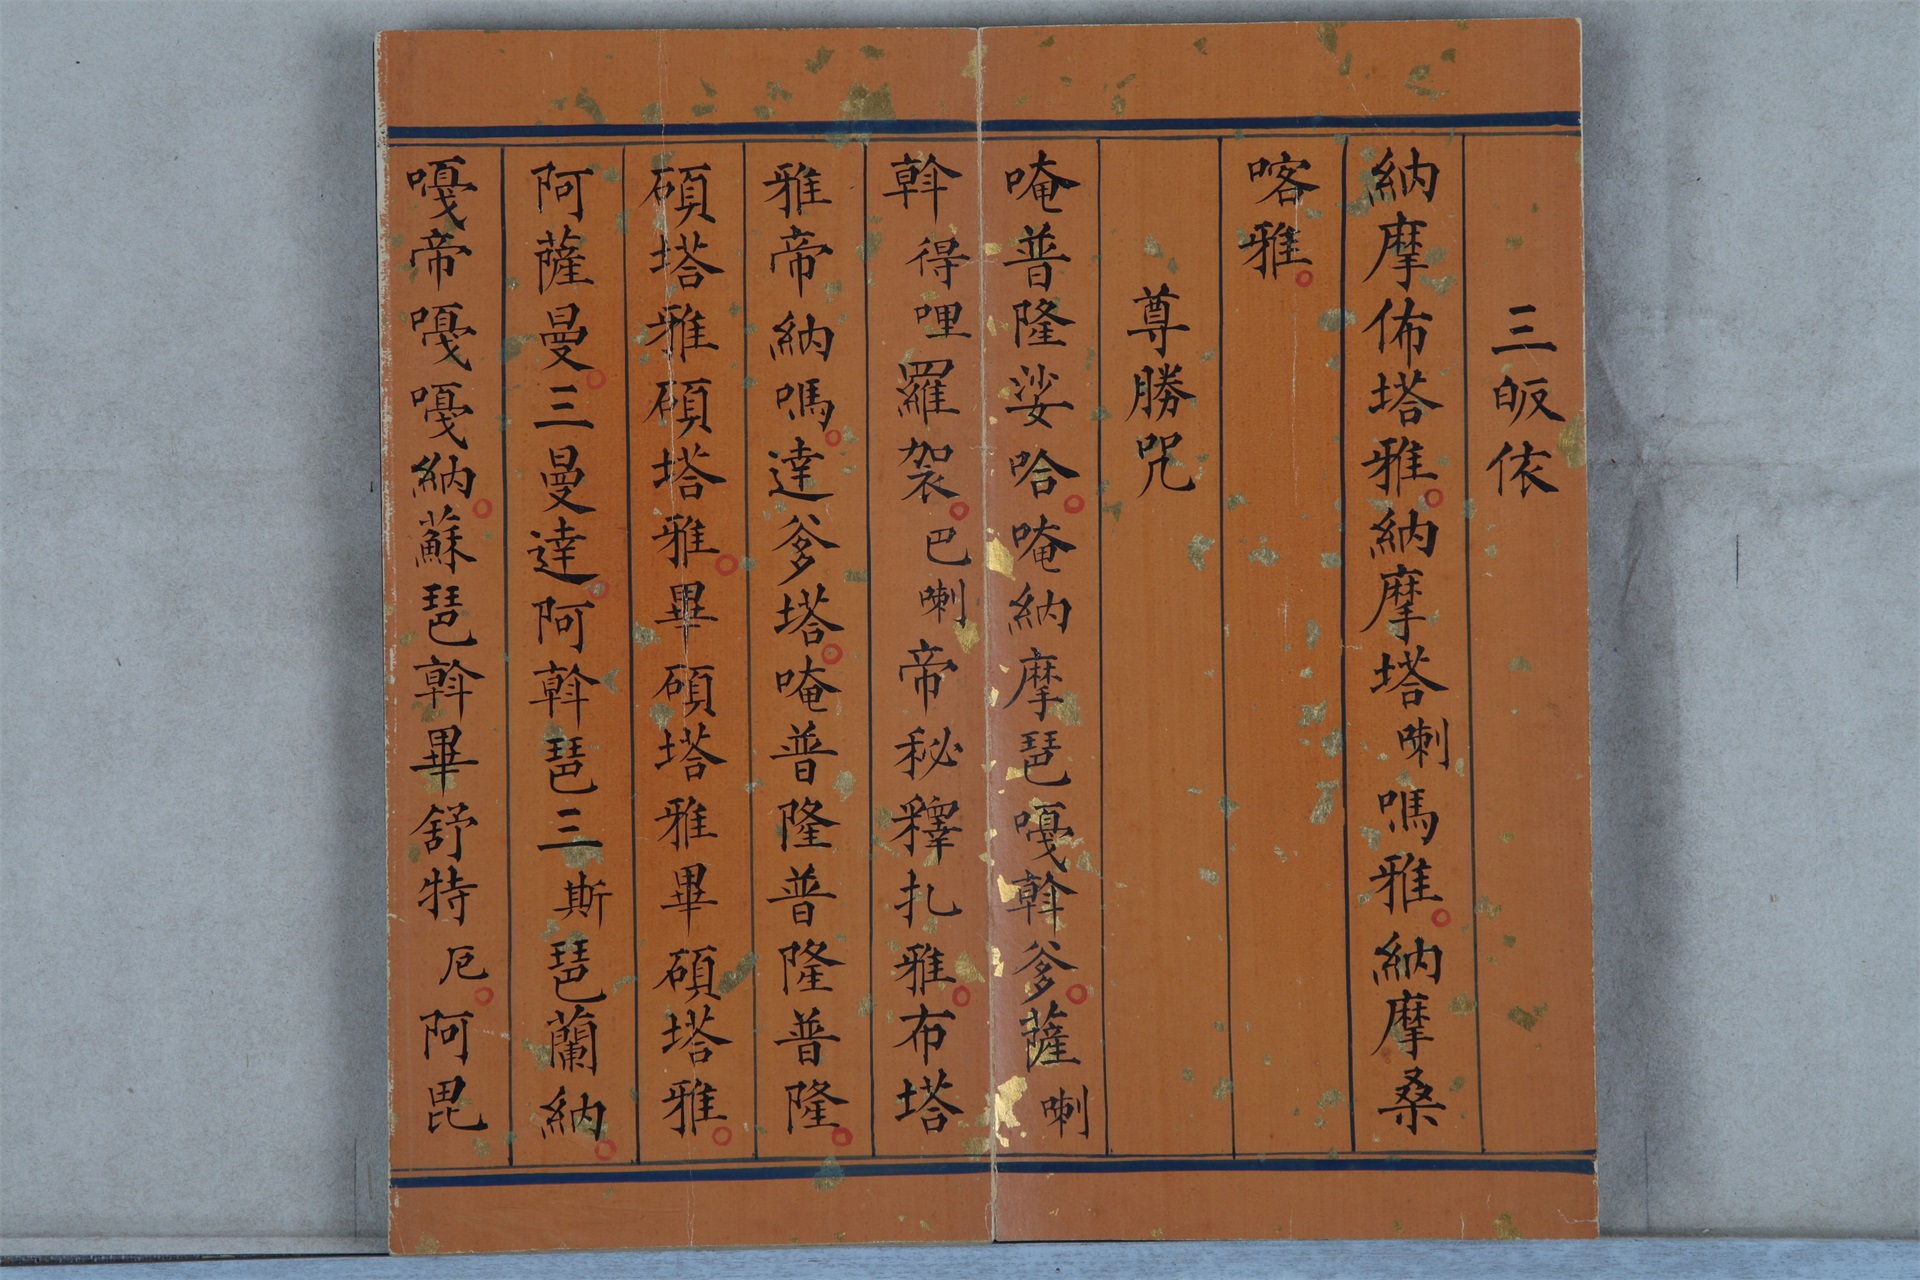 三皈依
納摩佈塔雅。納摩塔喇嗎雅。納摩桑
喀雅。
尊勝咒
唵普隆娑哈。唵納摩琶嘎斡爹。薩喇
斡得哩羅袈。巴喇帝秘釋扎雅。布塔
雅帝納嗎。達爹塔。唵普隆普隆普隆。
碩塔雅碩塔雅。畢碩塔雅畢碩塔雅。
阿薩曼。三曼達。阿斡琶三斯琶蘭納。
嘎帝嘎嘎納。蘇琶斡畢舒特厄。阿毘